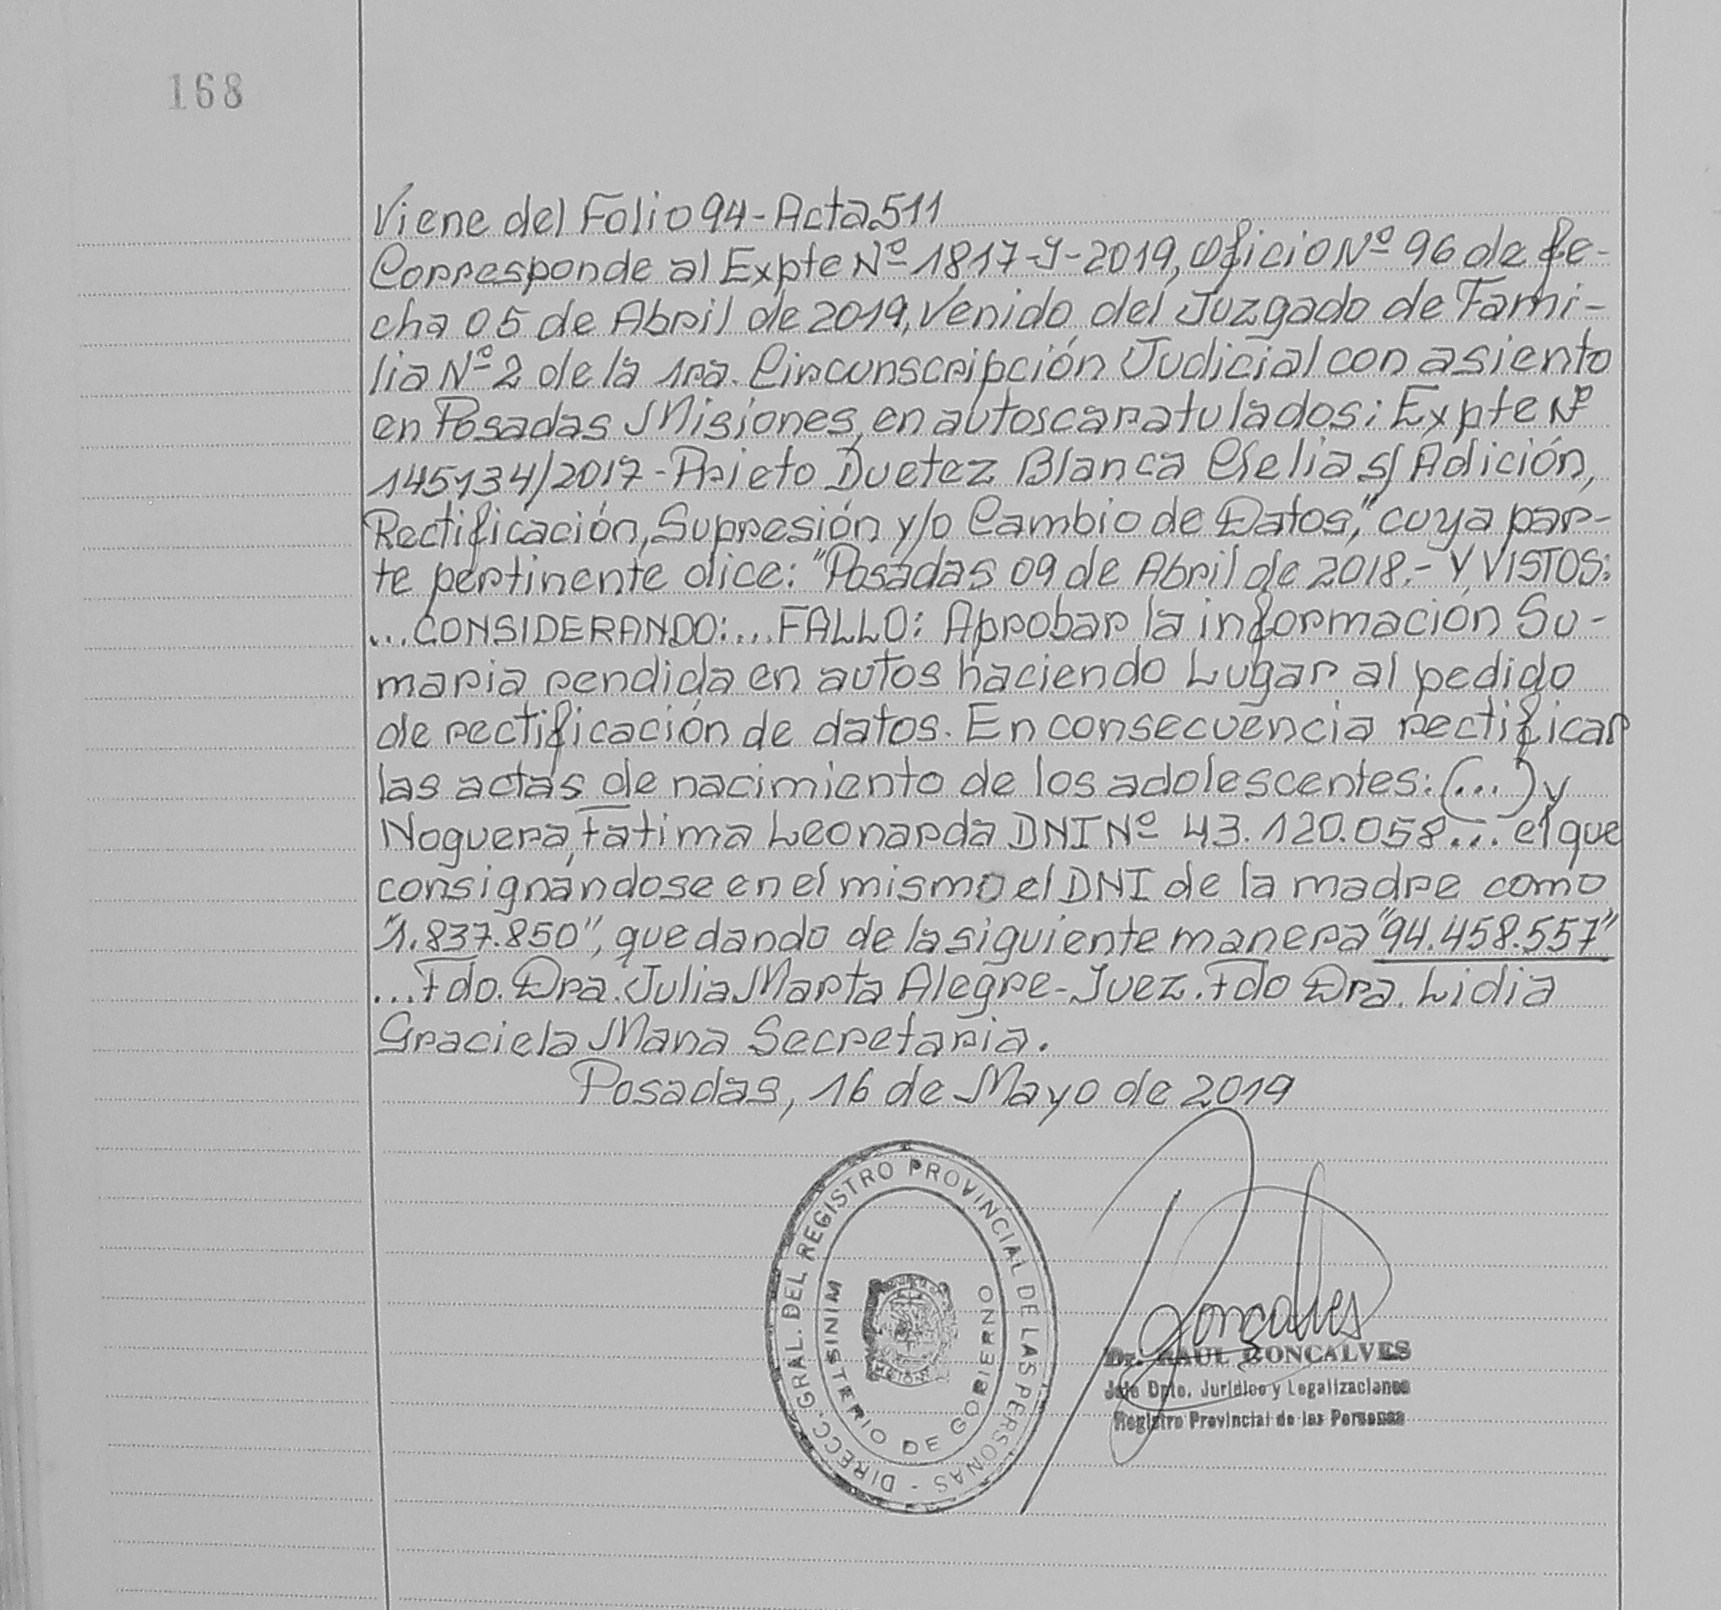 168
Viene del Folio 94-Acta 511
Corresponde al Expte Nº 1817-J-2019, Oficio Nº 96 de fe-
cha 05 de Abril de 2019, Venido del Juzgado de Fami-
lia Nº 2 de la 1ra. Circunscripción Judicial con asiento
en Posadas Misiones, en autos caratulados: Expte Nº
145134/2017-Prieto Duetez Blanca Clelia s/ Adición,
Rectificación, Supresión y/o Cambio de Datos," cuya par-
te pertinente dice: "Posadas 09 de Abril de 2018.- Y VISTOS:
...CONSIDERANDO:...FALLO: Aprobar la informacion Su-
maria rendida en autos haciendo Lugar al pedido
de rectificación de datos. En consecuencia rectificar
las actas de nacimiento de los adolescentes: (...) y
Noguera, Fatima Leonarda DNI Nº 43.120.058... el que
consignandose en el mismo el DNI de la madre como
"1.837.850", quedando de la siguiente manera "94.458.557"
...Fdo. Dra. Julia Marta Alegre-Juez. Fdo Dra. Lidia
Graciela Mana Secretaria.
Posadas, 16 de Mayo de 2019
DIRECC. GRAL. DEL REGISTRO PROVINCIAL DE LAS PERSONAS -
MINISTERIO DE GOBIERNO
Goncalves
Dr. RAUL GONCALVES
Jefe Dpto. Jurídico y Legalizaciones
Registro Provincial de las Personas